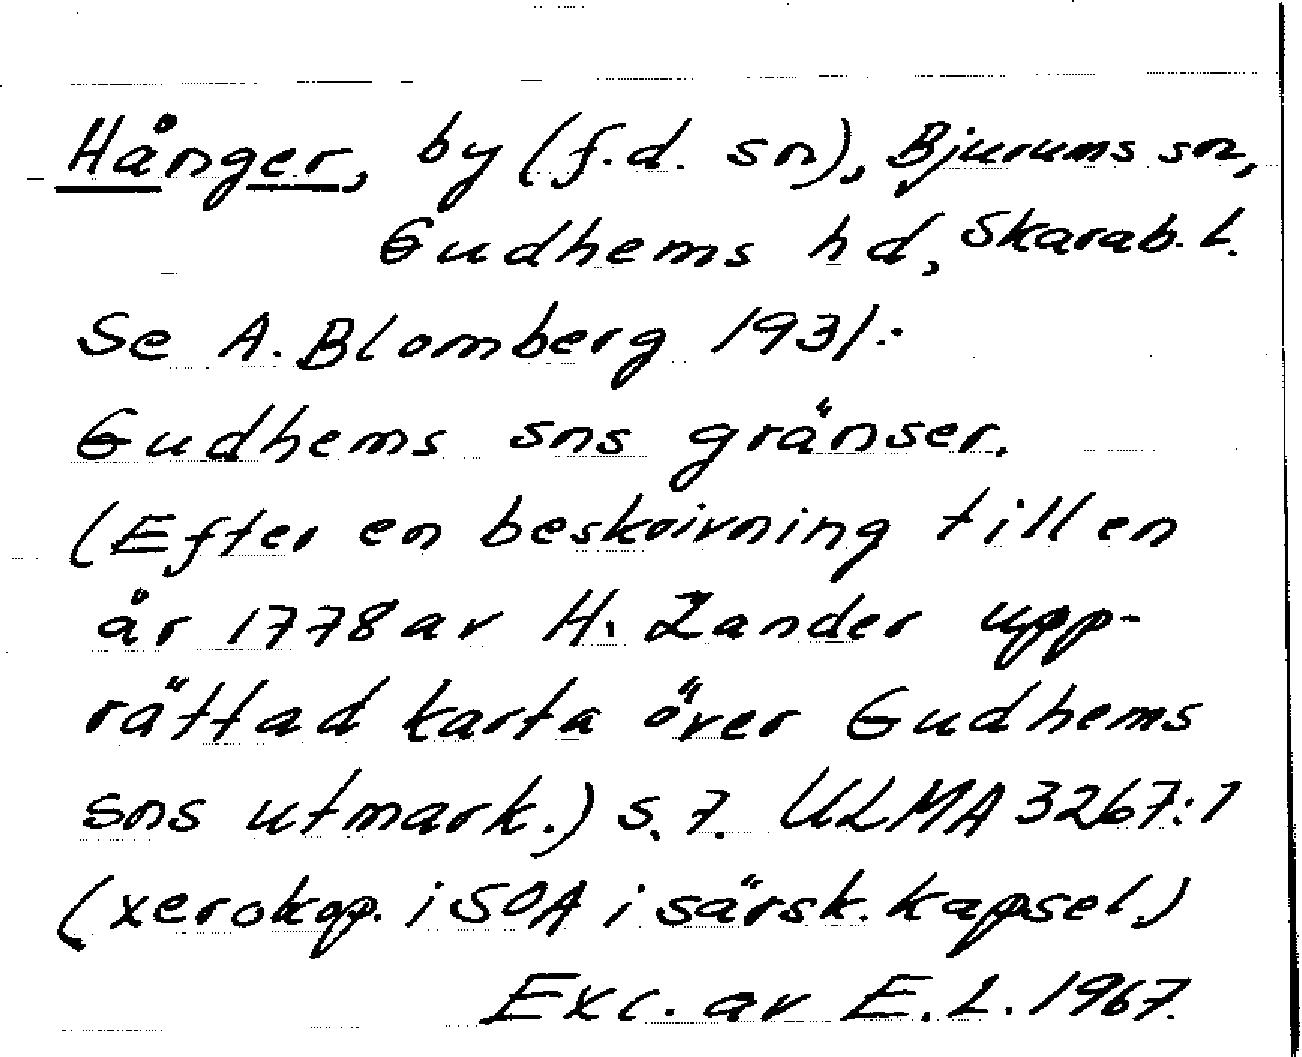 Hånger, by (f.d. sn), Bjurums sn,
Gudhems hd, Skarab. l.
Se A. Blomberg 1931:
Gudhems sns gränser.
(Efter en beskrivning till en
år 1778 av H. Zander upp-
rättad karta över Gudhems
sns utmark.) s. 7. ULMA 3267:1
(xerokop. i SOA i särsk. kapsel.)
Exc. av E. L. 1967.